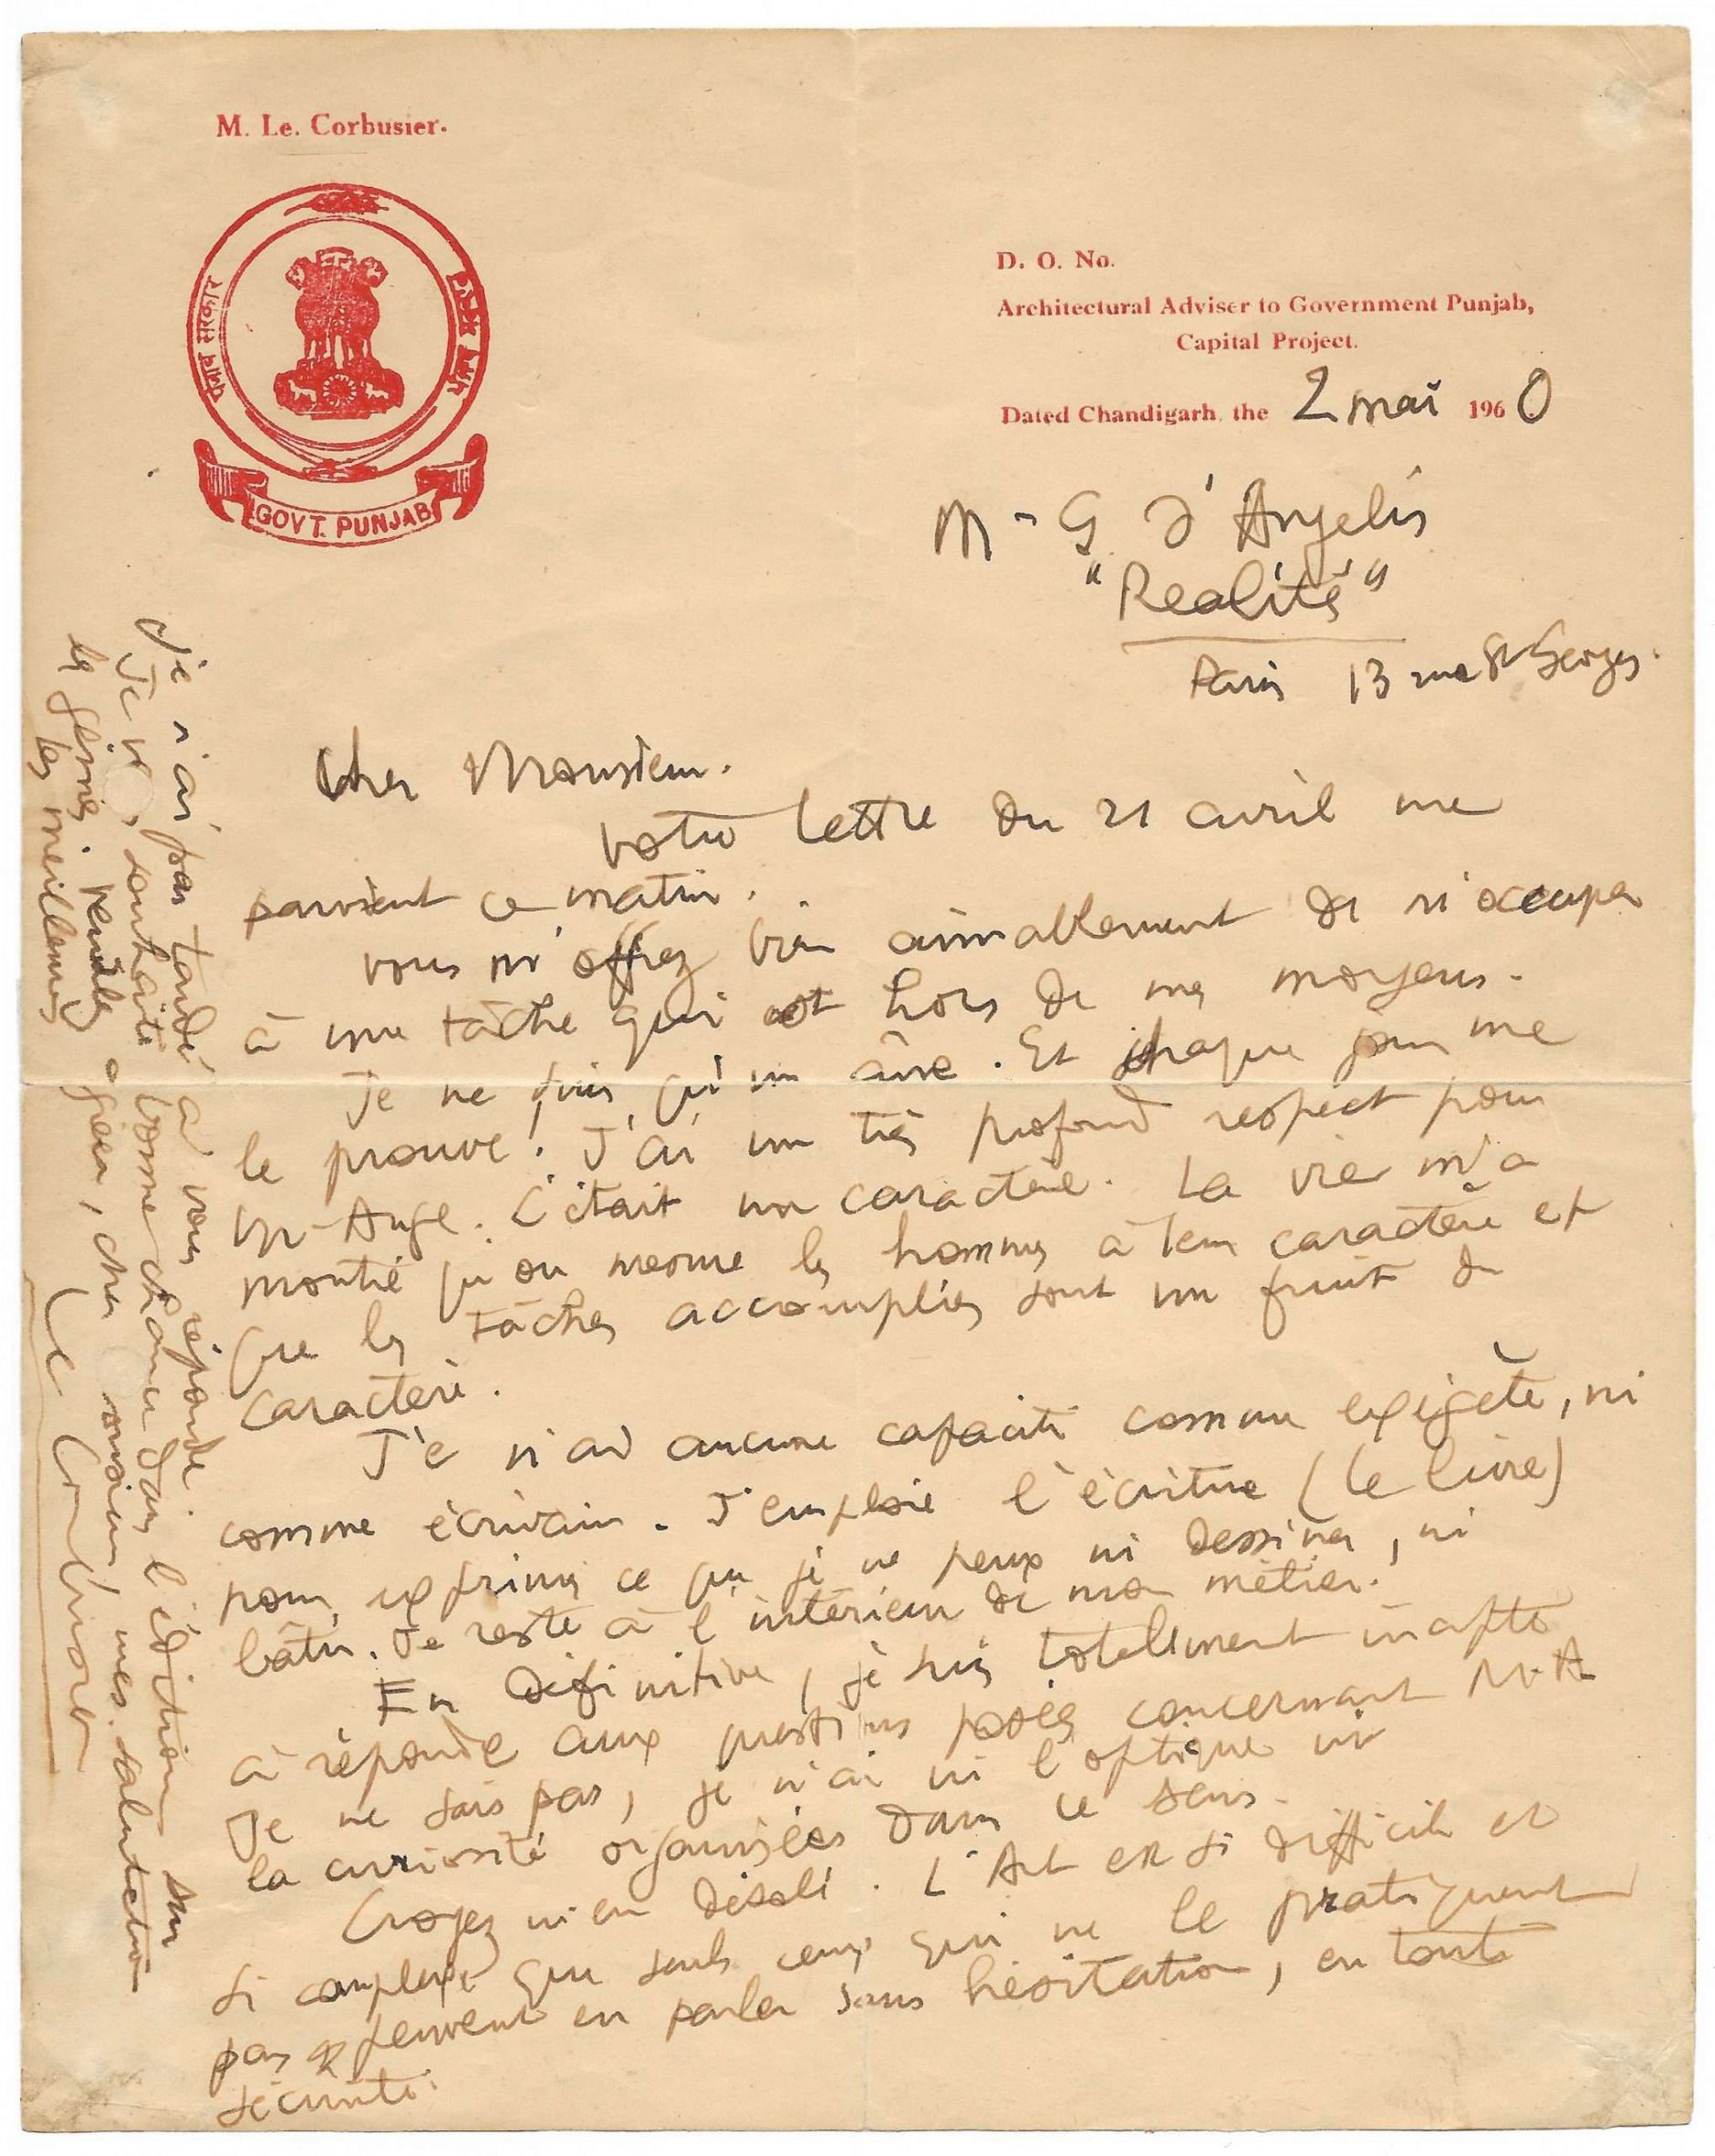 M. Le. Corbusier.
पंजाब सरकार
ਪੰਜਾਬ ਸਰਕਾਰ
GOVT. PUNJAB
D. O. No.
Architectural Adviser to Government Punjab,
Capital Project.
Dated Chandigarh, the 2 mai 1960
Mr G d'Angelis
"Realités"
Paris 13 rue St Georges.
Cher Monsieur.
votre lettre du 21 avril me
parvient ce matin.
vous m'offrez bien aimablement de m'occuper
à une tâche qui est hors de mes moyens.
Je ne suis qu'un âne. Et chaque jour me
le prouve! J'ai un très profond respect pour
M-Ange. C'était un caractère. La vie m'a
montré qu'on mesure les hommes à leur caractère et
que les tâches accomplies sont un fruit du
caractère.
Je n'ai aucune capacité comme exégète, ni
comme écrivain. J'emploie l'écriture (le livre)
pour exprimer ce que je ne peux ni dessiner, ni
bâtir. Je reste à l'intérieur de mon métier.
En définitive, je suis totalement inapte
à répondre aux questions posées concernant M-A
Je ne sais pas, je n'ai ni l'optique ni
la curiosité organisées dans ce sens.
Croyez m'en désolé. L'Art est si difficile et
si complexe que seuls ceux qui ne le pratiquent
pas peuvent en parler sans hésitation, en toute
sécurité.
Je n'ai pas tardé à vous répondre.
Je vous souhaite bonne chance dans l'édition sur
les génies. Veuillez agréer, cher monsieur, mes salutations
les meilleures
Le Corbusier